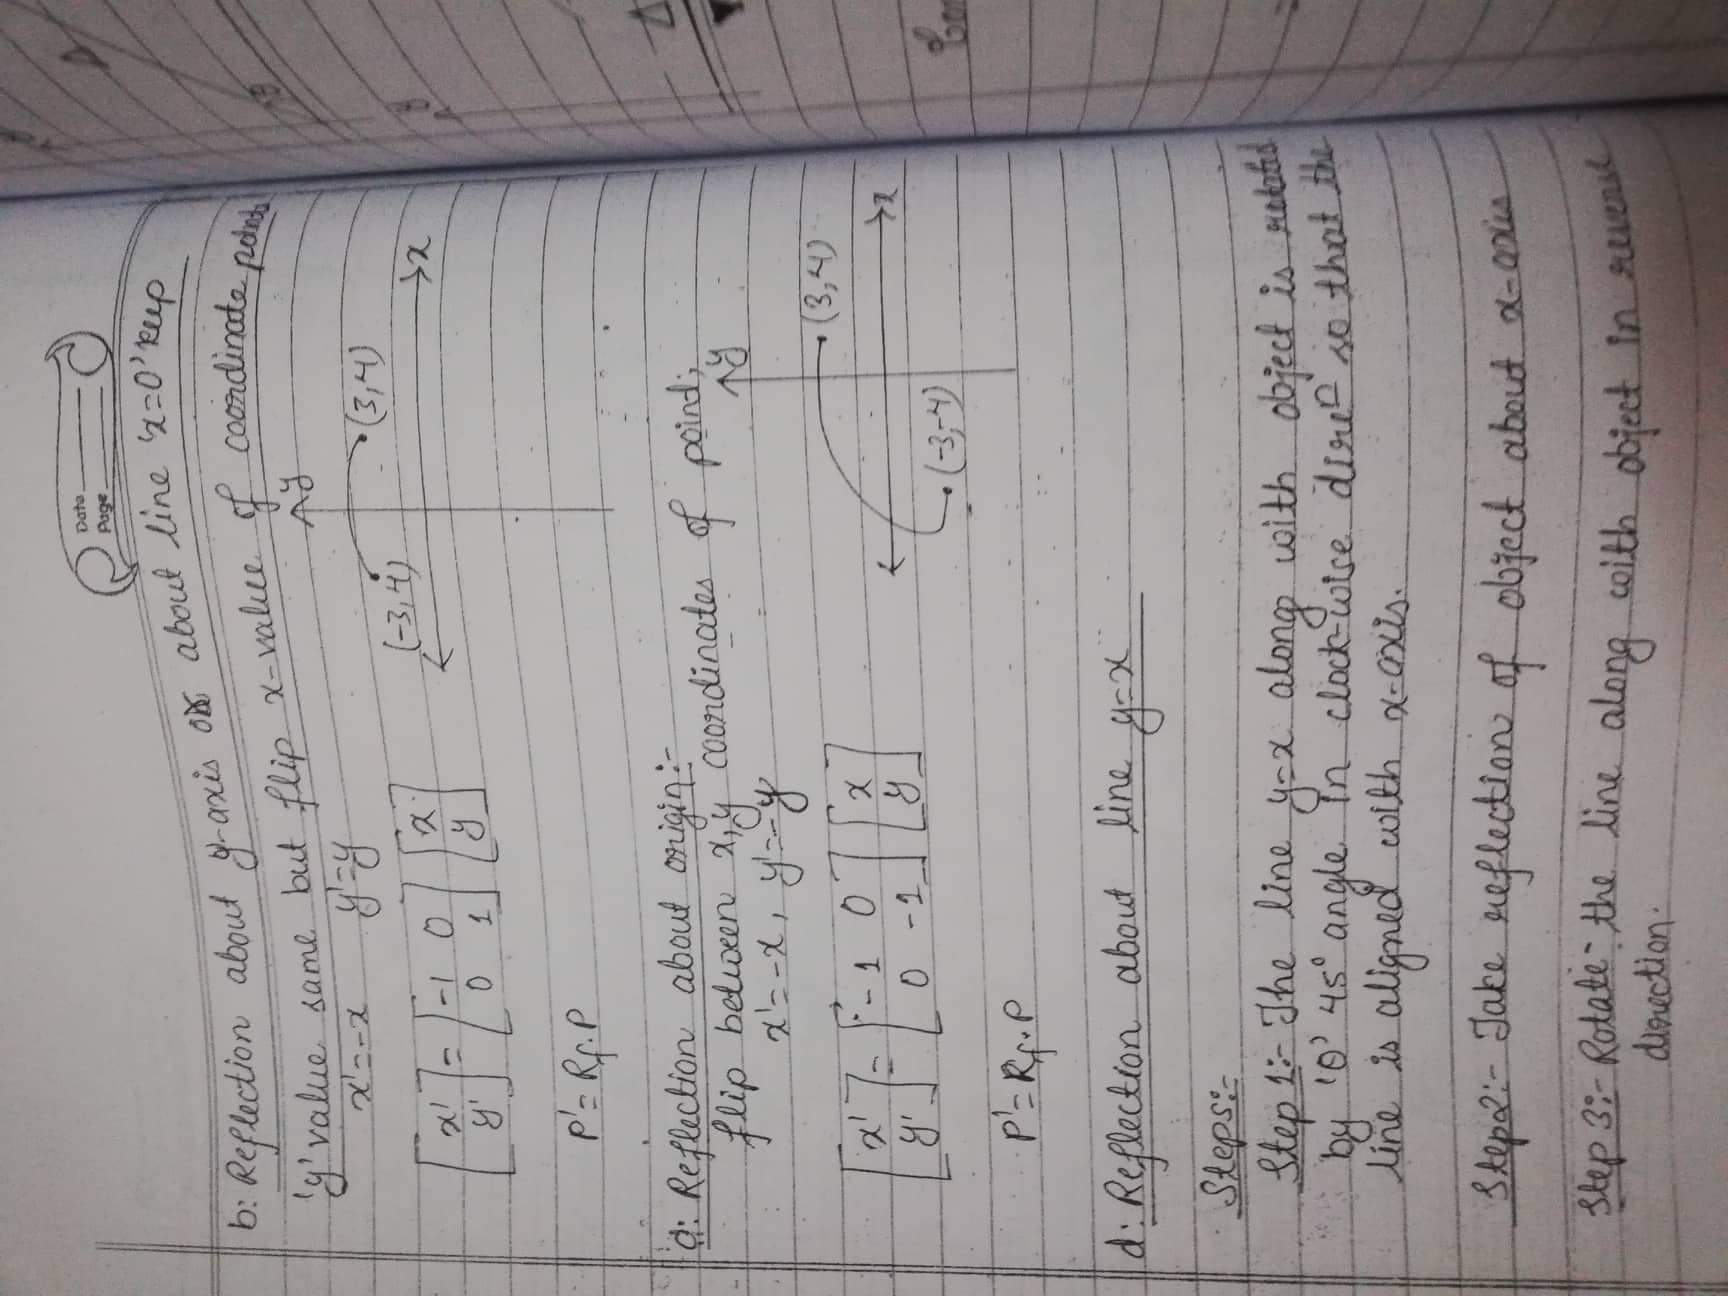 Date
Page
b: Reflection about y-axis or about line 'x=0' keep
'y' value same but flip x-value of coordinate points
x'=-x y'=y
y
(3,4)
(-3,4)
x
[x' y'] = [-1 0 0 1] [x y]
P'=Rf.P
d: Reflection about origin:-
flip between x,y coordinates of point;
x'=-x, y'=-y
y
(3,4)
x
(-3,-4)
[x' y'] = [-1 0 0 -1] [x y]
P'=Rf.P
d: Reflection about line y=x
Steps:-
Step 1:- The line y=x along with object is rotated
by 'θ' 45° angle in clock-wise direⁿ so that the
line is aligned with x-axis.
Step2:- Take reflection of object about x-axis
Step 3:- Rotate the line along with object in reverse
direction.